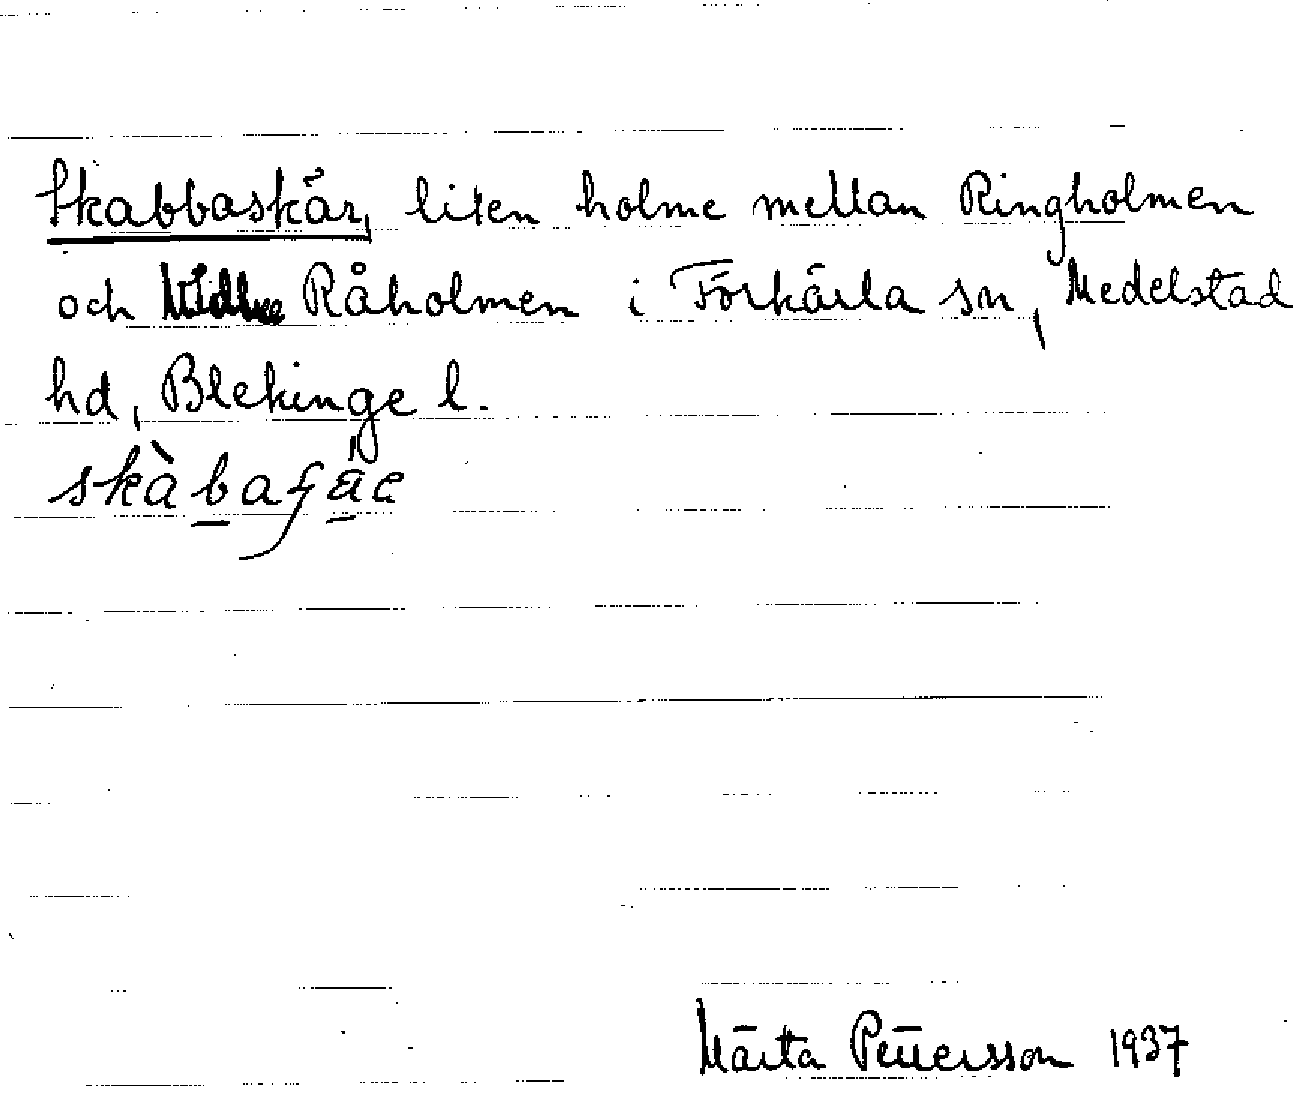 Skabbaskär, liten holme mellan Ringholmen
och Råholmen i Förkärla sn, Medelstad
hd, Blekinge l.
skàbaʄäc
Märta Pettersson 1937